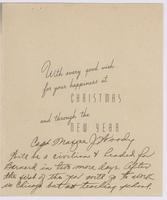 With every good wish
for your happiness at
CHRISTMAS
and through the
NEW YEAR
Capt Mazzie J. Woody
Will be a civilian & headed for
in two more days. After
the first of the year will go to work
in Chicago but not teaching school.